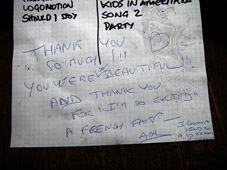 LOCOMOTION
SHOULD I STAY
KIDS IN AMERICA
SONG 2
PARTY
THANK YOU
SO MUCH !!!
YOU WERE BEAUTIFUL!!!
AND THANK YOU
FOR "I'M SO EXCITED"
A FRENCH FAN